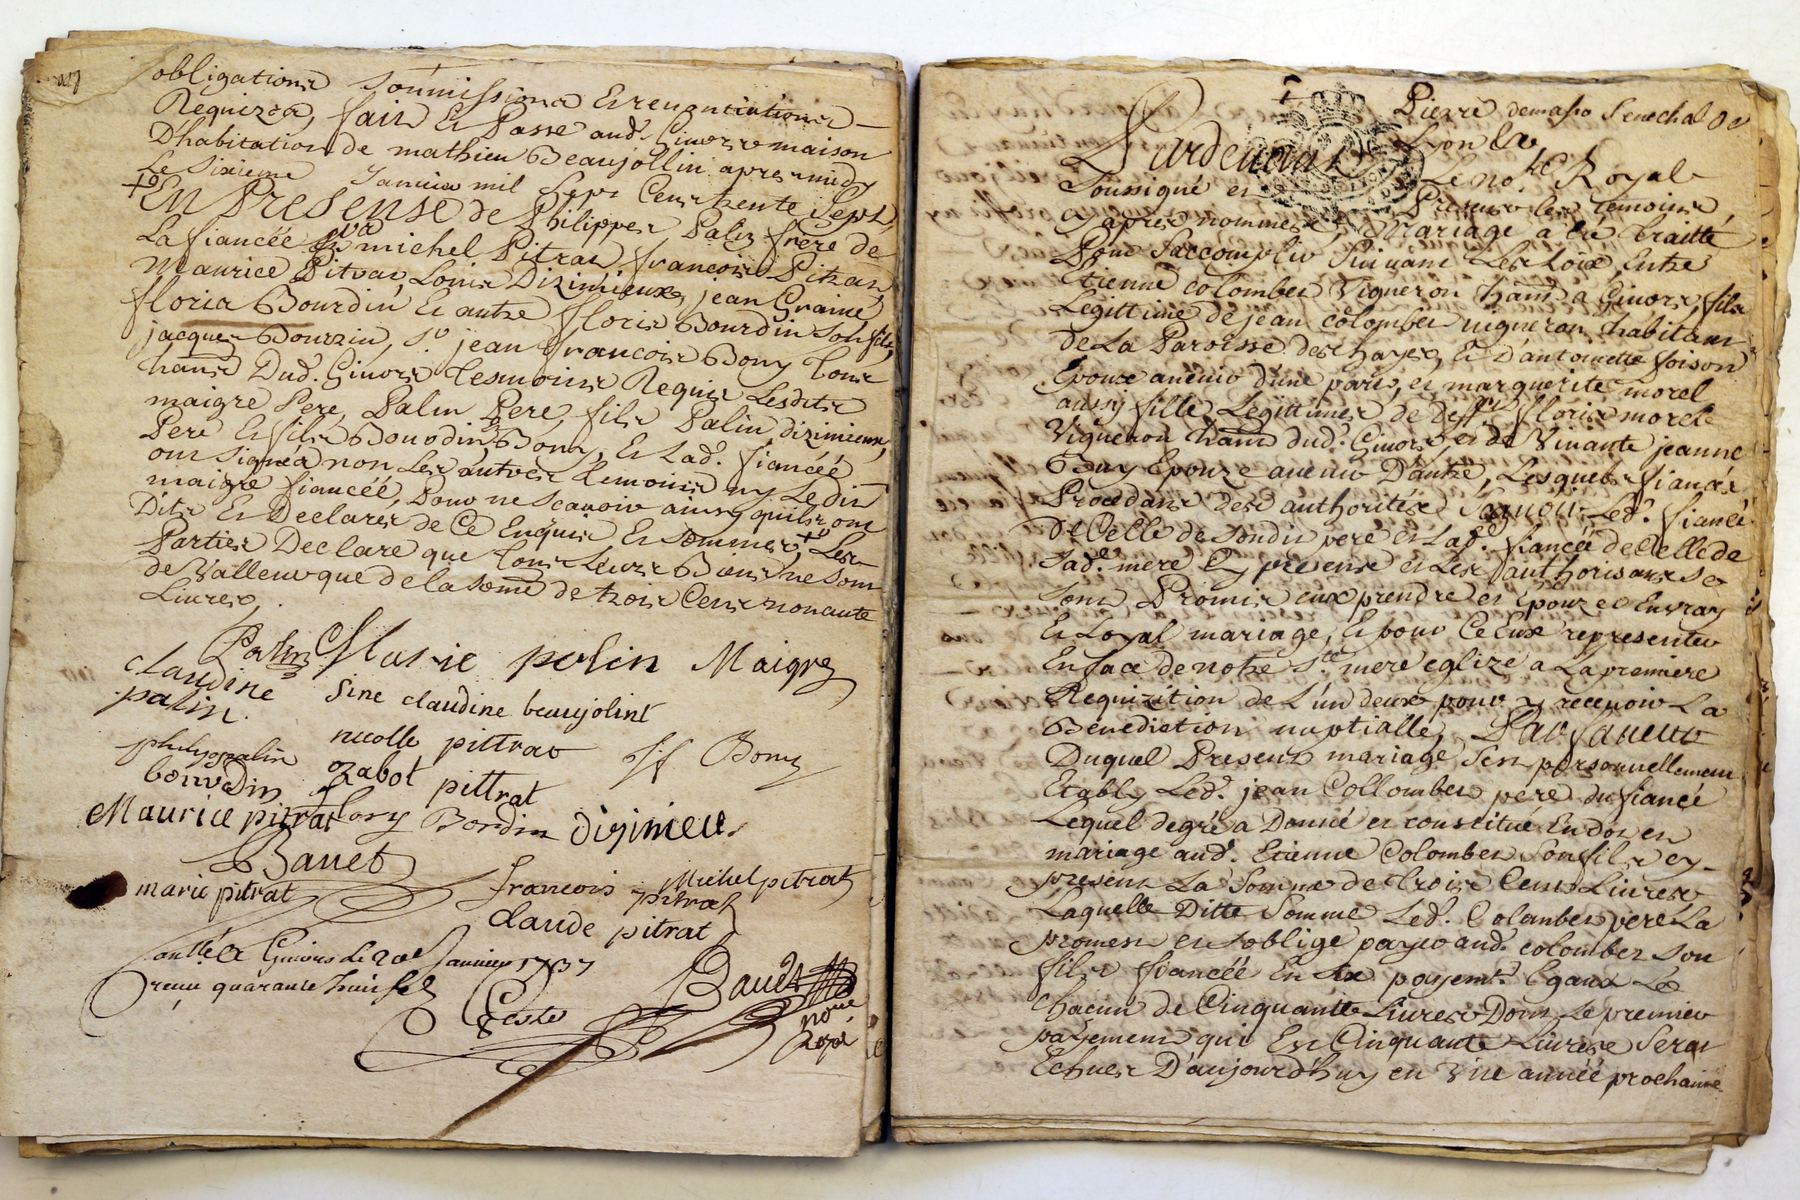 obligations soumissions Et renonciations
Requizes, fait Et Passé aud. Givors maison
D'habitation de mathieu Beaujollin apres midy
Le Sixieme Janvier mil Sept Cent trente Sept
En Presense de Philippes Palin frere de
La fiancée michel Pitrat, francois Pitrat,
Maurice Pitrat, Louis Dizimieux, jean Graine
floris Bourdin, Et autre floris Bourdin Son fils,
jacques Bourdin, Sr. jean francois Bony tous
hants Dud. Givors tesmoins Requis Lesdits
maigre Pere, Palin Pere, fils Palin, dizimieux,
Pere Et fils Bourdin, Bony, Et Lad. fiancéé
ont Signéa non Les autres temoins ny Ledit
maigre fiancéé, Pour ne Scavoir ainsy quils ont
Dits Et Declarés de Ce Enquis Et Sommés, + Les
Parties Declare que tous Leurs Biens ne Sont
de Valleur que de la Somé de trois Cent nonante
Livres,
Palin Marie polin Maigre
claudine Sine claudine beaujolint
palin.
nicolle pittrat JF Bony
philyppalin
bourdin gabot pittrat
Maurice pitrat flory Bordin dizimieu
Bauet
marie pitrat francois pitrat Michel pitrat
claude pitrat
Conllé a Givors Le 20e Janvier 1737
receu quarante huit sols
Coste Bauet
nore
Royal
Pierre demasso Senechal De
Lyon
Pardevant Le nore. Royal
Soussigné et Presents les temoins
Cy apres nommes, Mariage a été traitté
Pour Saccomplir Suivant Les Loix, Entre
Etienne colombet Vigneron hant a Givors, fils
Legittime de jean colombet vigneron habitant
de La Paroisse des hayes, Et D'antoinette foison
Epouze aveniv d'une part, et marguerite morel
aussy fille Legittime de Deffunt floris morel
Vigneron hant dud. Givors, et de Vivante jeanne
Bony Epouze aveniv D'autre, Lesquels fiancés
Procedants des authorités Scavoir Led. fiancé
de Celle de Sondit pere et Lad. fiancéé de Celle de
Sad. mere Cy presens et Les authorisants Se
Sont Promis eux prendre et Epouzer En vray
Et Loyal mariage, Et pour Ce Eux representer
En face de notre Ste mere eglize a La premiere
Requizition de L'un deux pour y recevoir La
Benediction nuptialle, En faveur
Duquel Present mariage, S'est personnellement
Etably Led. jean Collombet pere du fiancé
Lequel de gré a Donné et constitué En dot en
mariage aud. Etienne Colombet Son fils cy
present La Somme de trois Cent Livres
Laquelle Ditte Somme Led. Colombet pere La
promest et S'oblige payer aud. colombet Son
fils fiancéé En Six payemts. Egaux de
chacun de Cinquante Livres Dont Le premier
payement qui Est Cinquante Livres Sera
Echues D'aujourd'huy en Vne annéé prochaine